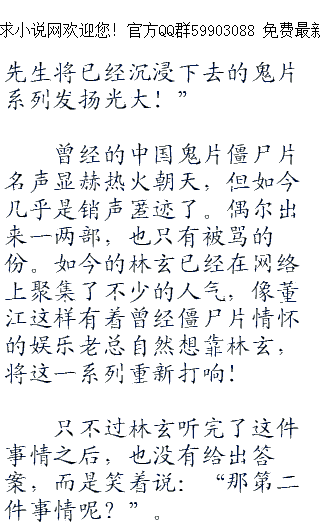 求小说网欢迎您！官方QQ群59903088 免费最新
先生将已经沉浸下去的鬼片
系列发扬光大！”
曾经的中国鬼片僵尸片
名声显赫热火朝天，但如今
几乎是销声匿迹了。偶尔出
来一两部，也只有被骂的
份。如今的林玄已经在网络
上聚集了不少的人气，像董
江这样有着曾经僵尸片情怀
的娱乐老总自然想靠林玄，
将这一系列重新打响！
只不过林玄听完了这件
事情之后，也没有给出答
案，而是笑着说：“那第二
件事情呢？”。